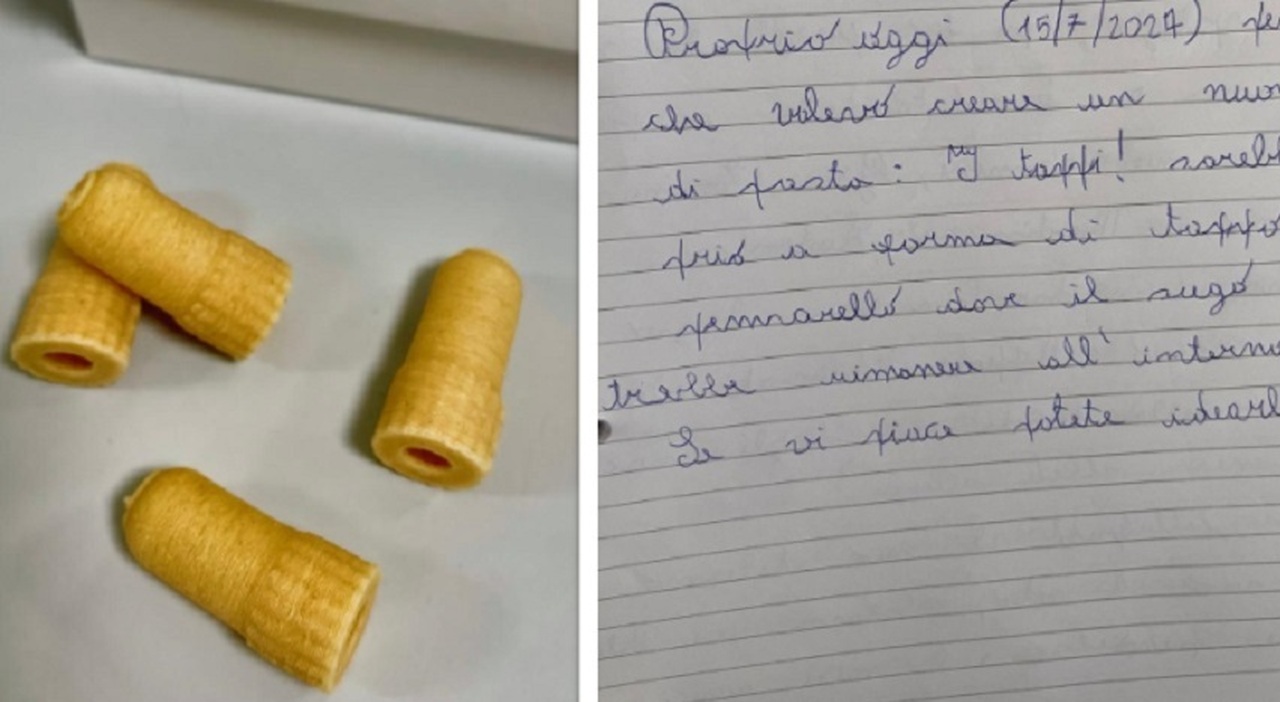 Proprio oggi (15/7/2024) pe
che volevo creare un nuov
di pasta: "My tappi! sareb
prio a forma di tappo
pennarello dove il sugo
trebbe rimanere all'interno
Se vi piace potete idearl